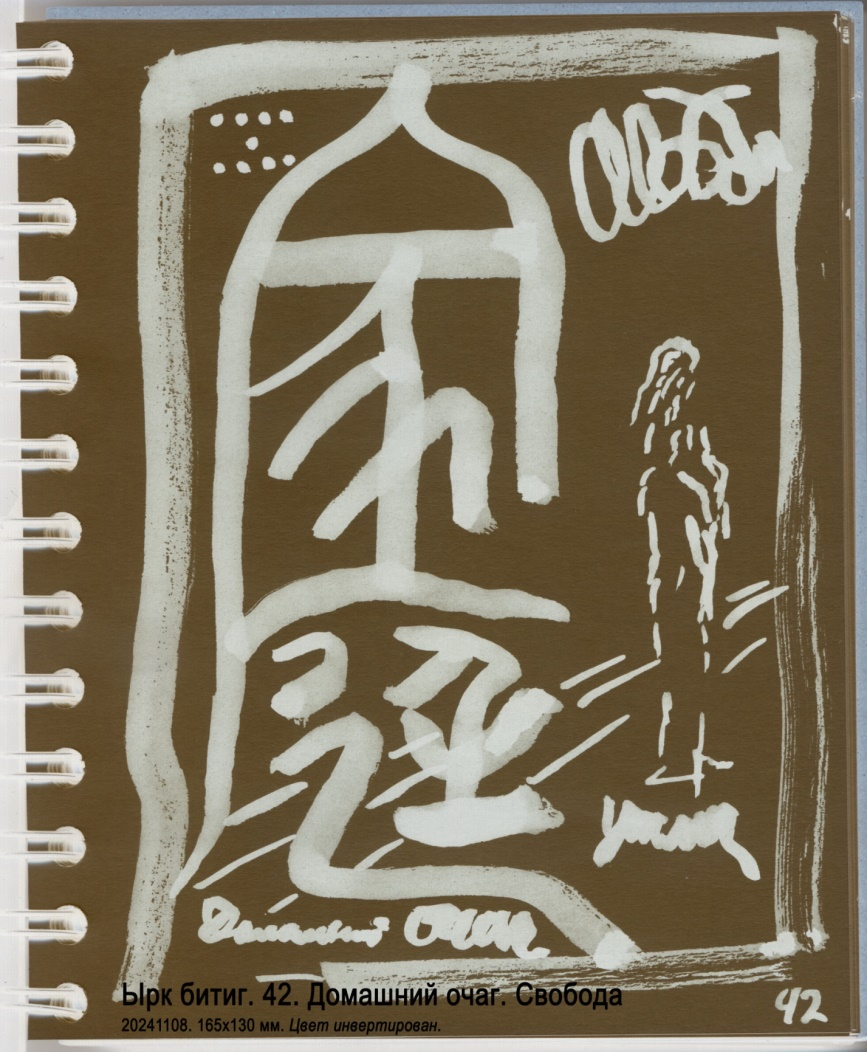 Свобода
Домашний Очаг
42
Ырк битиг. 42. Домашний очаг. Свобода
20241108. 165x130 мм. Цвет инвертирован.